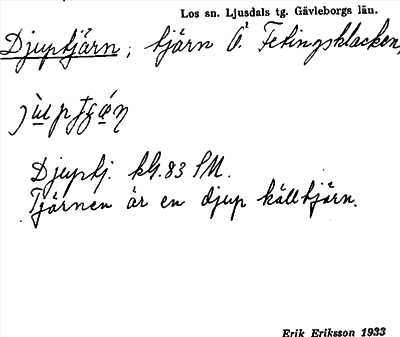 Los sn. Ljusdals tg. Gävleborgs län.
Djuptjärn, tjärn Ö. Fetingsklacken,
Djuptj. kG.83 SM.
Tjärnen är en djup källtjärn.
Erik Eriksson 1933